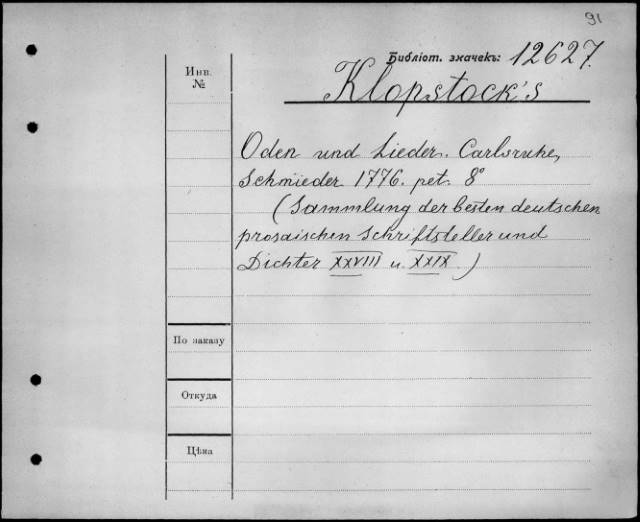 91
Библіот. значекъ: 12627.
Инв. №
Klopstock's
Oden und Lieder. Carlsruhe,
Schmieder 1776. pet. 8°
(Sammlung der besten deutschen
prosaischen Schriftsteller und
Dichter XXVIII u. XXIX.)
По заказу
Откуда
Цѣна